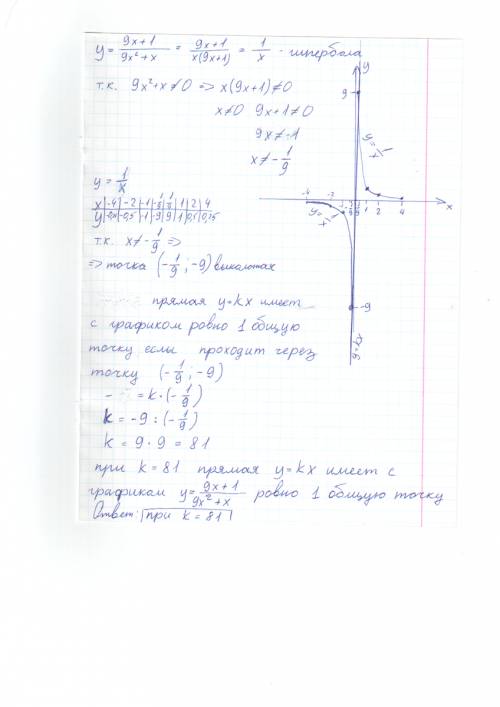 y = (9x+1)/(9x²+x) = (9x+1)/(x(9x+1)) = 1/x - гипербола
т.к. 9x²+x≠0 => x(9x+1)≠0
x≠0 9x+1≠0
9x≠-1
x≠-1/9
y = 1/x
x | -4 | -2 | -1 | -1/9 | 1/9 | 1 | 2 | 4
y | -0,25 | -0,5 | -1 | -9 | 9 | 1 | 0,5 | 0,25
т.к. x≠-1/9 =>
=> точка (-1/9; -9) выколотая
прямая y=kx имеет
с графиком ровно 1 общую
точку если проходит через
точку (-1/9; -9)
- = k·(-1/9)
k = -9 : (-1/9)
k = 9·9 = 81
при k = 81 прямая y=kx имеет с
графиком y = (9x+1)/(9x²+x) ровно 1 общую точку
Ответ: при k = 81
y
9
y=1/x
-4 -2 -1 1 2 4
x
y=1/x
-9
y=kx